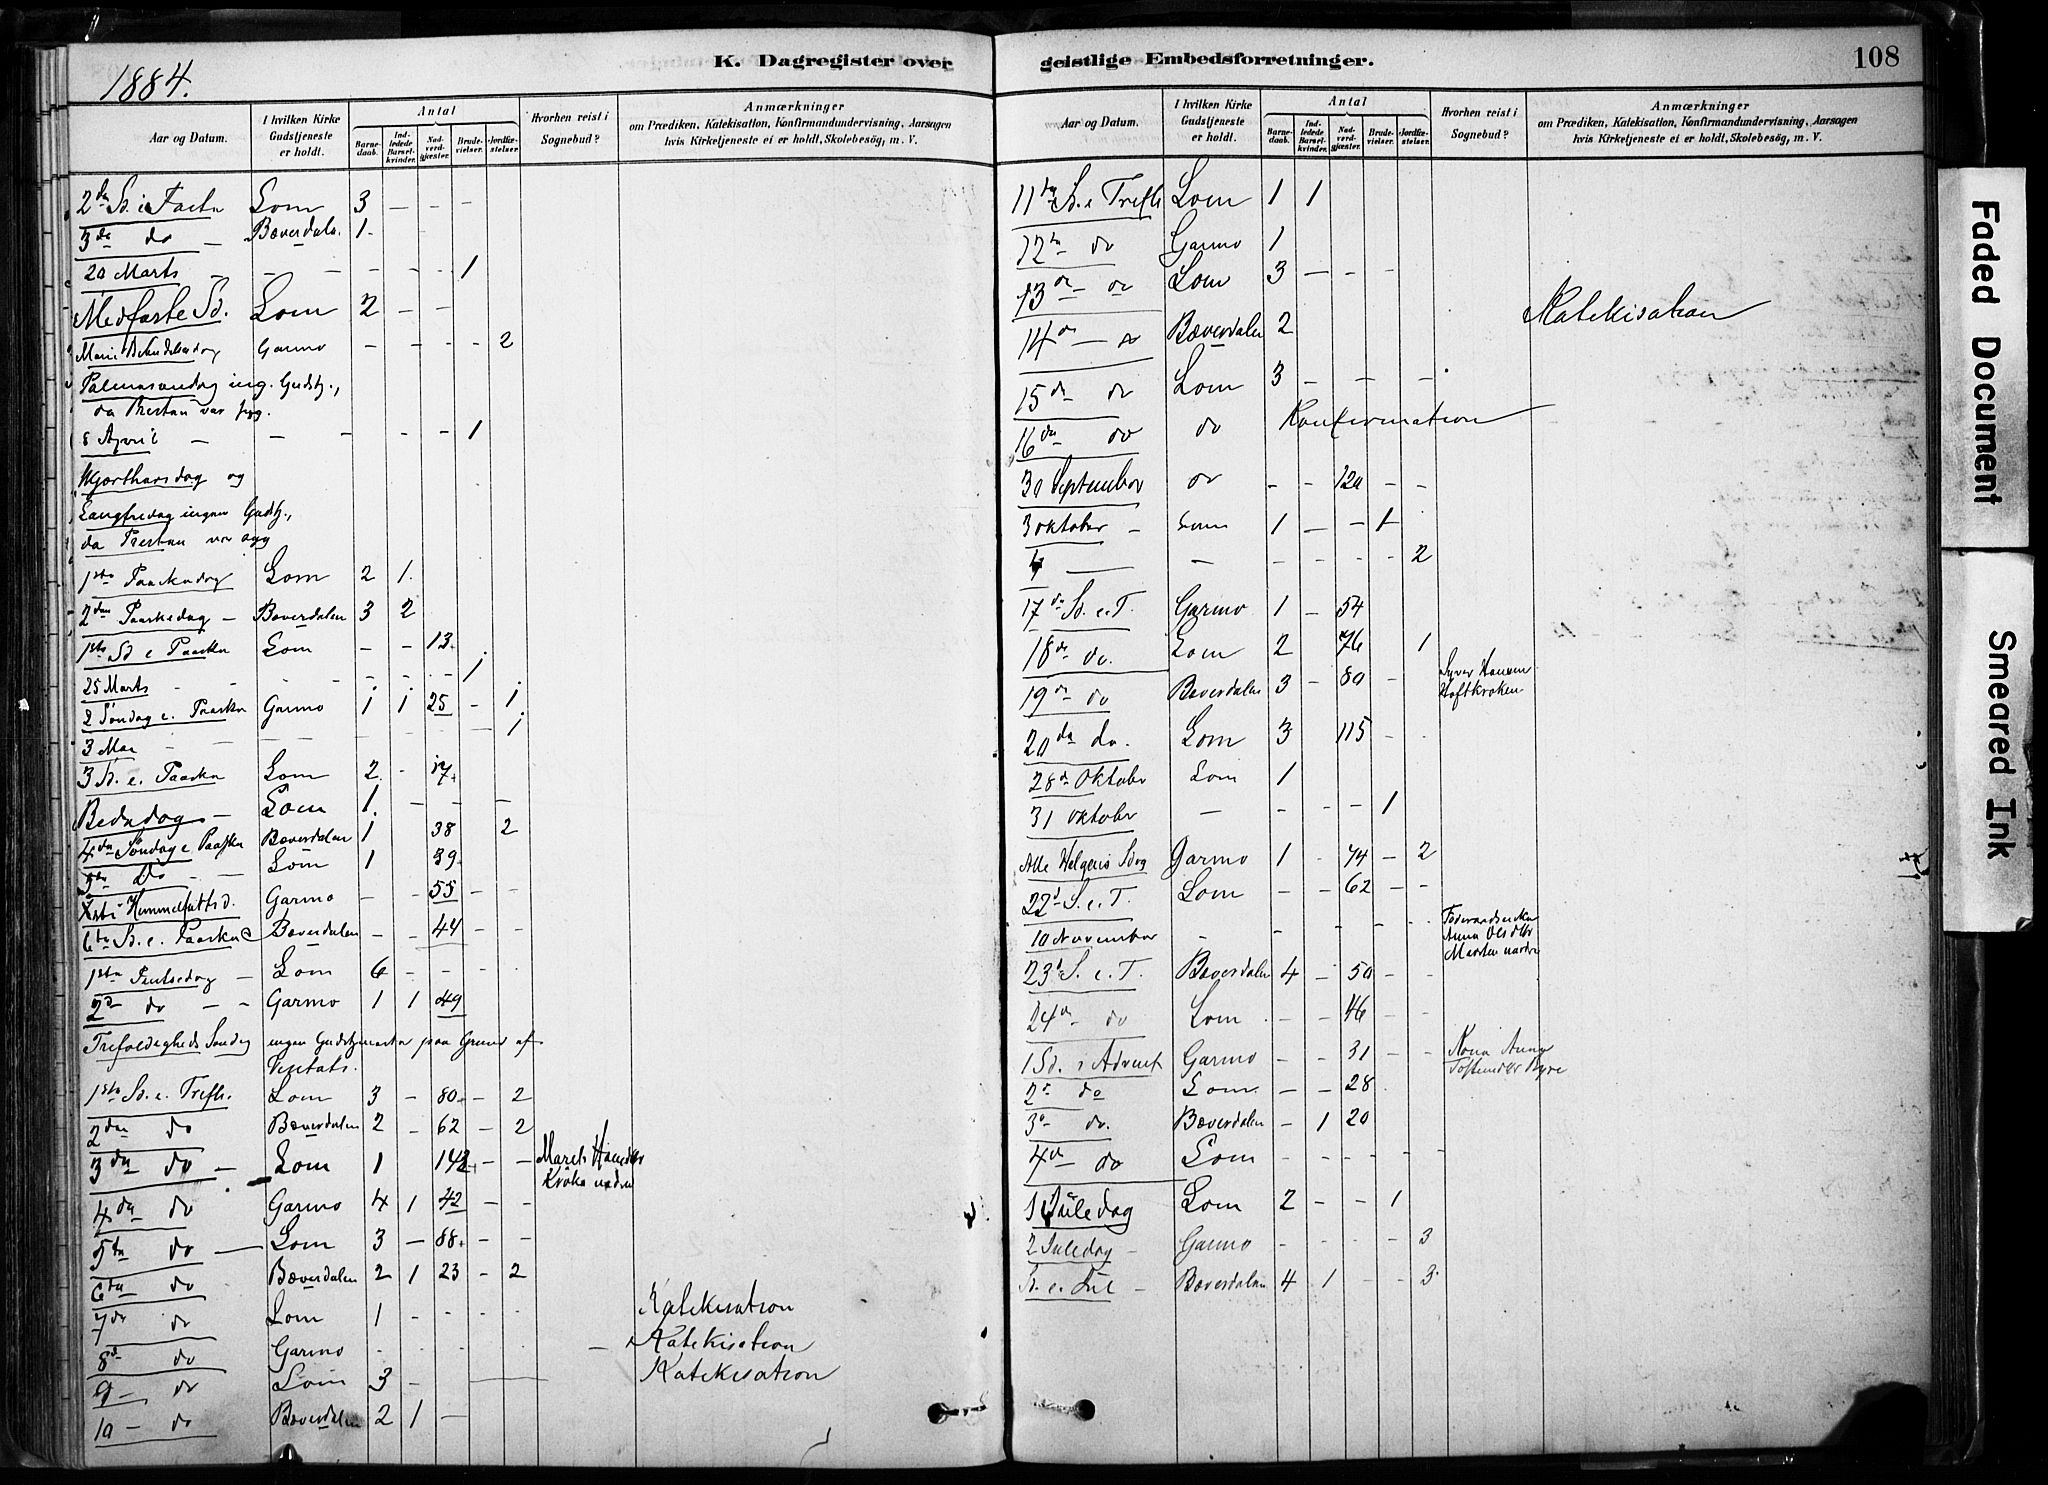 1884.
K. Dagregister over
Aar og Datum.
I hvilken Kirke Gudstjeneste er holdt.
Antal
Barnedaab.
Indledede Barselkvinder.
Nadverdgjæster.
Brudevielser.
Jordfæstelser.
Hvorhen reist i Sognebud?
Anmærkninger
om Prædiken, Katekisation, Konfirmandundervisning, Aarsagen
hvis Kirketjeneste ei er holdt, Skolebesøg, m. V.
2den Sd. i Faste Lom 3 — — —
3de do — Bæverdalen 1 -
20 Marts — — — — — — 1
Midfaste Sd. Lom 2 — —
Marie Bebudelsesdag Garmo — — — — 2
Palmesøndag ing. Gudstj.,
da Presten var syg.
8 April — — — — — 1
Skjærthorsdag og
Langfredag ingen Gudstj.,
da Presten var syg
1ste Paaskedag Lom 2 1.
2den Paaskedag — Bæverdalen 3 2
1ste Sd e Paaske Lom — — 13.
25 Marts — — — — — — 1
2 Søndag e. Paaske Garmo 1 1 25 — 1
3 Mai — — — — — — 1
3 Sd. e. Paaske Lom 2 - 17.
Bededag — Lom 1. — — —
4de Søndag e Paaske Bæverdalen 1 38 2
5te Do — — Lom 1 39
Xsti Himmelfartsd. Garmo — — 55 — —
6te Sd. e. Paaske Bæverdalen — — 44 — —
1ste Pintsedag — Lom 6 — — — —
2d do — — Garmo 1 1 49
Trefoldigheds Søndag ingen Gudstjeneste paa Grund af
Visitats.
1ste Sd. e. Trefh. Lom 3 — 80 — 2
2den do Bæverdalen 2 — 62 — 2
3de do — Lom 1 142 — — Marit
Kroken nedre
4de do Garmo 4 1 42 — —
5te do — Lom 3 — 88 — —
6te do Bæverdalen 2 1 23 — 2
7de do Lom 1 — — — Katekisation
8de do Garmo — — — — — Katekisation
9 — do Lom 3 — — Katekisation
10 — do Bæverdalen 2 1 —
geistlige Embedsforretninger.
108
Aar og Datum.
I hvilken Kirke Gudstjeneste er holdt.
Antal
Barnedaab.
Indledede Barselkvinder.
Nadverdgjæster.
Brudevielser.
Jordfæstelser.
Hvorhen reist i Sognebud?
Anmærkninger
om Prædiken, Katekisation, Konfirmandundervisning, Aarsagen
hvis Kirketjeneste ei er holdt, Skolebesøg, m. V.
11te Sd. e Trefh Lom 1 1
12te do Garmo 1
13de do Lom 3 — — —
14de — do Bæverdalen 2 Katekisation
15de do Lom 3 — — —
16de do do Konfirmation
30 September do — — 120 — —
3 oktober — Lom 1 — — 1
4 — — — — — — 2
17de Sd. e. T. Garmo 1 — 54
18de do. Lom 2 76 1
19de do Bæverdalen 3 — 80 — Syver Hansen
Hoftkroken
20de do. Lom 3 115 —
28de Oktober Lom 1
31 oktober — — — — 1
Alle Helgens Sdag Garmo 1 - 74 — 2
22d S. e. T. Lom — — 62 — —
10 November — — — — — —
Anna
Marsten nordre
23d S. e. T. Bæverdalen 4 — 50 — —
24de do Lom — — 46 — —
1 Sd. i Advent Garmo — — 31 — — Kona Anne
2d do Lom — — 28
3d do. Bæverdalen — 1 20
4de do Lom — — — — —
1 Juledag Lom 2 — — 1
2 Juledag — Garmo — — — — 3
S. e. Jul — Bæverdalen 4 1 — — 3
Faded Document
Smeared Ink